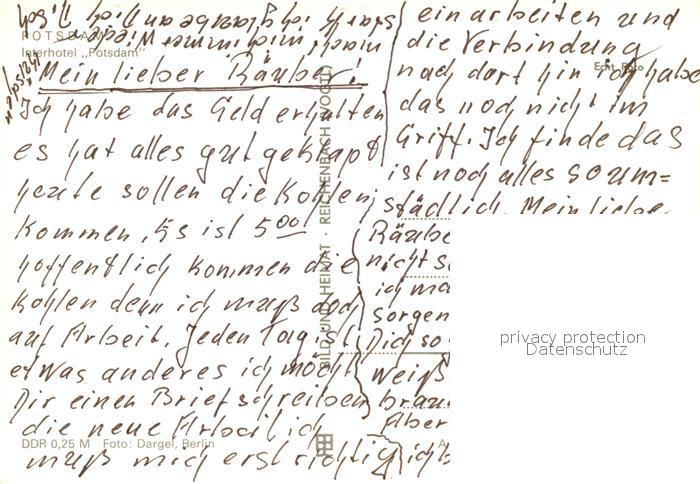 POTSDAM
Interhotel „Potsdam"
Echt Foto
Mein lieber Räuber!
Ich habe das Geld erhalten
es hat alles gut geklapt
heute sollen die Kohlen
kommen. Es ist 5 00
hoffentlich kommen die
Kohlen denn ich muß doch
auf Arbeit. Jeden Tag ist
etwas anderes ich möcht
Dir einen Brief schreiben
die neue Arbeit ich
muß mich erst richtig
einarbeiten und
die Verbindung
nach dort hin ich habe
das noch nicht im
Griff. Ich finde das
ist noch alles so um=
städlich. Mein liebe
Räube
nicht s
ich ma
sorgen
Dich so
weiß
brau
Aber
ich b
BILD UND HEIMAT · REICHENBACH (VOGTL)
DDR 0,25 M Foto: Dargel, Berlin
A
privacy protection
Datenschutz